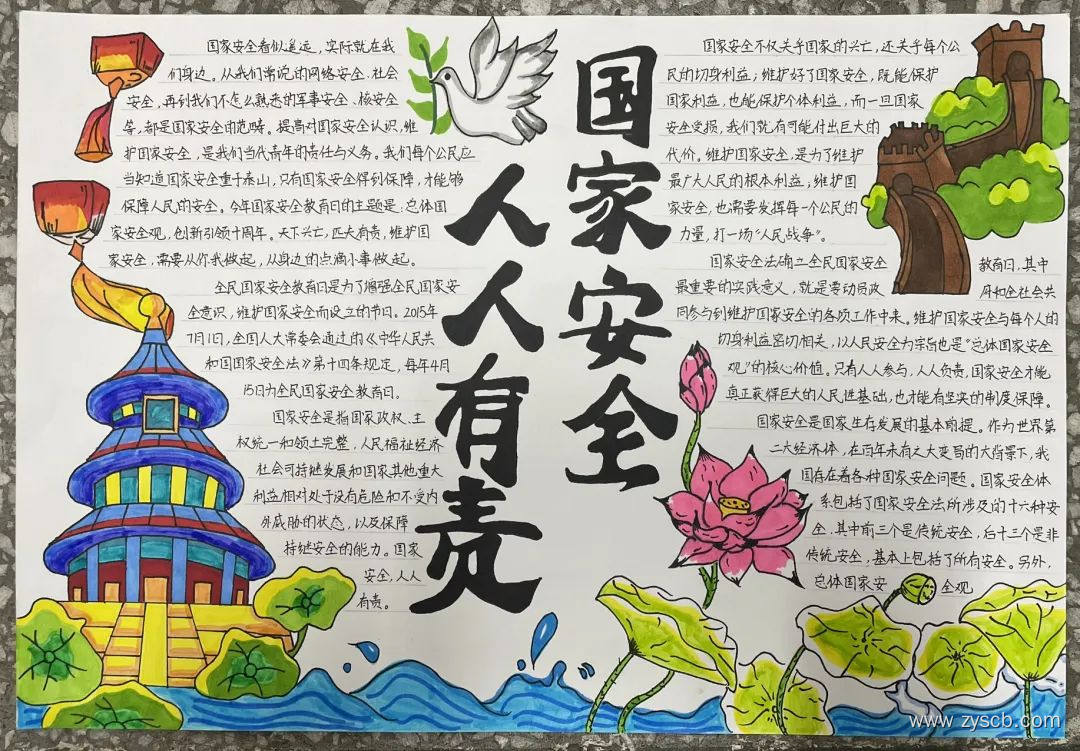 国家安全
人人有责
国家安全看似遥远，实际就在我
们身边。从我们常说的网络安全、社会
安全，再到我们不怎么熟悉的军事安全、核安全
等，都是国家安全的范畴。提高对国家安全认识，维
护国家安全，是我们当代青年的责任与义务。我们每个公民应
当知道国家安全重于泰山，只有国家安全得到保障，才能够
保障人民的安全。今年国家安全教育日的主题是：总体国
家安全观，创新引领十周年。天下兴亡，匹夫有责，维护国
家安全，需要从你我做起，从身边的点滴小事做起。
全民国家安全教育日是为了增强全民国家安
全意识，维护国家安全而设立的节日。2015年
7月1日，全国人大常委会通过的《中华人民共
和国国家安全法》第十四条规定，每年4月
15日为全民国家安全教育日。
国家安全是指国家政权、主
权统一和领土完整，人民福祉经济
社会可持继发展和国家其他重大
利益相对处于没有危险和不受内
外威胁的状态，以及保障
持继安全的能力。国家
安全，人人
有责。
国家安全不仅关乎国家的兴亡，还关乎每个公
民的切身利益；维护好了国家安全，既能保护
国家利益，也能保护个体利益，而一旦国家
安全受损，我们就有可能付出巨大的
代价。维护国家安全，是为了维护
最广大人民的根本利益；维护国
家安全，也需要发挥每一个公民的
力量，打一场“人民战争”。
国家安全法确立全民国家安全 教育日，其中
最重要的实践意义，就是要动员政 府和全社会共
同参与到维护国家安全的各项工作中来。维护国家安全与每个人的
切身利益密切相关，以人民安全为宗旨也是“总体国家安全
观”的核心价值。只有人人参与，人人负责，国家安全才能
真正获得巨大的人民性基础，也才能有坚实的制度保障。
国家安全是国家生存发展的基本前提。作为世界第
二大经济体，在百年未有之大变局的大背景下，我
国存在着各种国家安全问题。国家安全体
系包括了国家安全法所涉及的十六种安
全，其中前三个是传统安全，后十三个是非
传统安全，基本上包括了所有安全。另外，
总体国家安 全观
www.zyscb.com